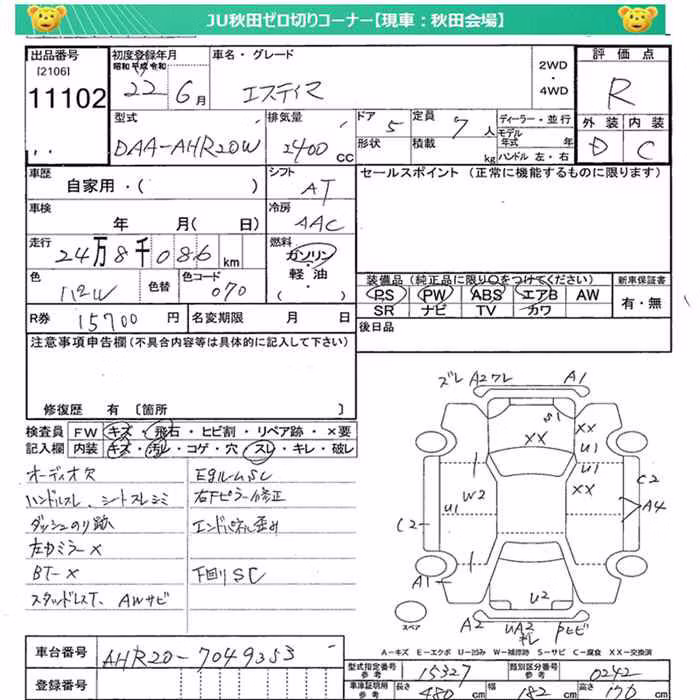 JU秋田ゼロ切りコーナー【現車：秋田会場】
出品番号 初度登録年月 車名・グレード 評価点
[2106] 昭和 平成 令和 2WD
11102 22年 6月 エスティマ ・4WD R
型式 排気量 ドア 定員 ディーラー・並行 外装 内装
DAA-AHR20W 2400 CC 5 7人 モデル年式 年 D C
形状 積載 kg ハンドル 左・右
車歴 シフト セールスポイント（正常に機能するものに限ります）
自家用・（ ） AT
車検 冷房
年 月（ 日） AAC
走行 燃料
24万8千086 km ガソリン
軽油
・（ ）
色 色替 色コード 装備品（純正品に限り○をつけてください） 新車保証書
070 PS PW ABS エアB AW 有・無
SR ナビ TV カワ
R券 15700円 名変期限 月 日 後日品
注意事項申告欄（不具合内容等は具体的に記入して下さい）
修復歴 有 [箇所 ]
検査員 FW キズ・飛石・ヒビ割・リペア跡・×要
記入欄 内装 キズ・汚レ・コゲ・穴・スレ・キレ・破レ
オーディオ欠
ハンドルスレ、シートスレシミ 右Fピラー修正
ダッシュのり跡 エンドパネル歪み
左ドミラー×
BT-× 下回りSC
スタッドレスT、AWサビ
ズレ A2ワレ A1
S1
XX XX
U1
U1
W2 XX C2
U1 A4
C2
A1
U2
A2 UA2 キレ Pビビ
スペア
A-キズ E-エクボ U-凹み W-補修跡 S-サビ C-腐食 XX-交換済
車台番号 AHR20-7049353
登録番号
型式指定番号 参考 15327 類別区分番号 参考 0242
車庫証明用 参考 長さ 480 cm 幅 182 cm 高さ 176 cm